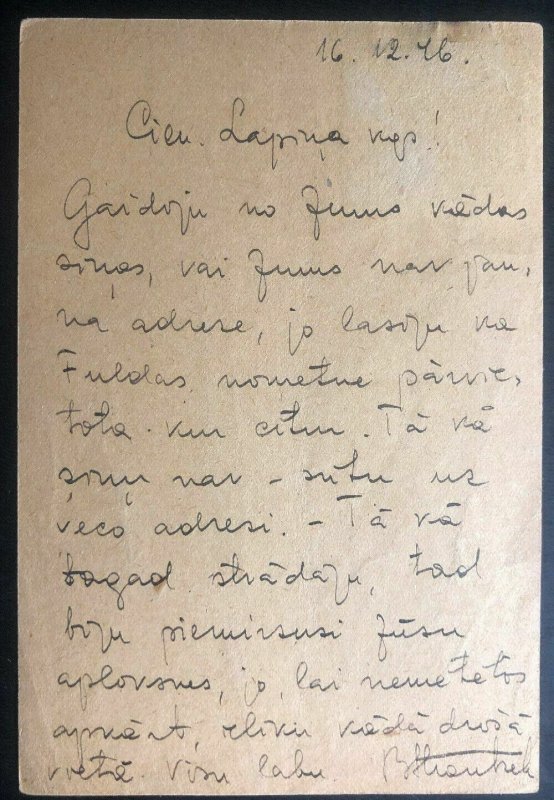 16. 12. 46.
Cien. Lapiņa kgs!
Gaidoju no Jums kādas
ziņas, vai Jums nav jau,
na adrese, jo lasīju ka
Fuldas nometne pārvie,
tota kur citur. Tā kā
ziņu nav - sūtu uz
veco adresi. - Tā kā
tagad strādāju, tad
biju piemirsusi Jūsu
aploksnes, jo, lai nemētātos
apkārt, eliku kādā drošā
vietā. Visu labu.